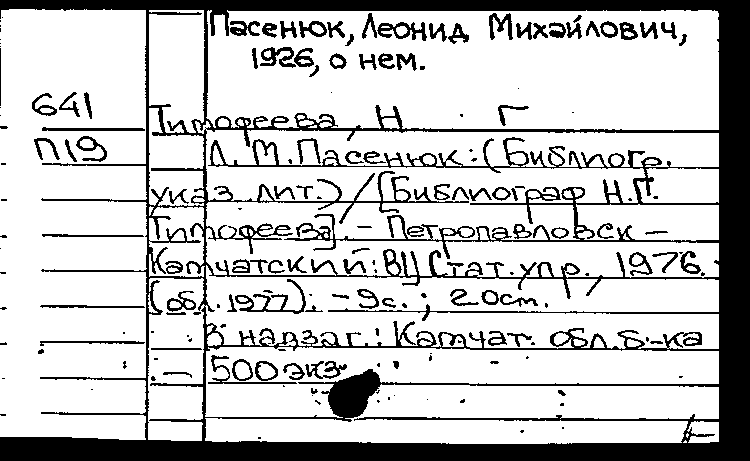 Пасенюк, Леонид Михайлович,
1926, о нем.
641
Тимофеева, Н Г
П19
Л. М. Пасенюк: (Библиогр.
указ. лит.) / [Библиограф Н.Г.
Тимофеева]. – Петропавловск –
Камчатский: ВЦ Стат. упр., 1976.
(обл. 1977). – 9с.; 20см.
В надзаг.: Камчат. обл. б-ка
– 500 экз.